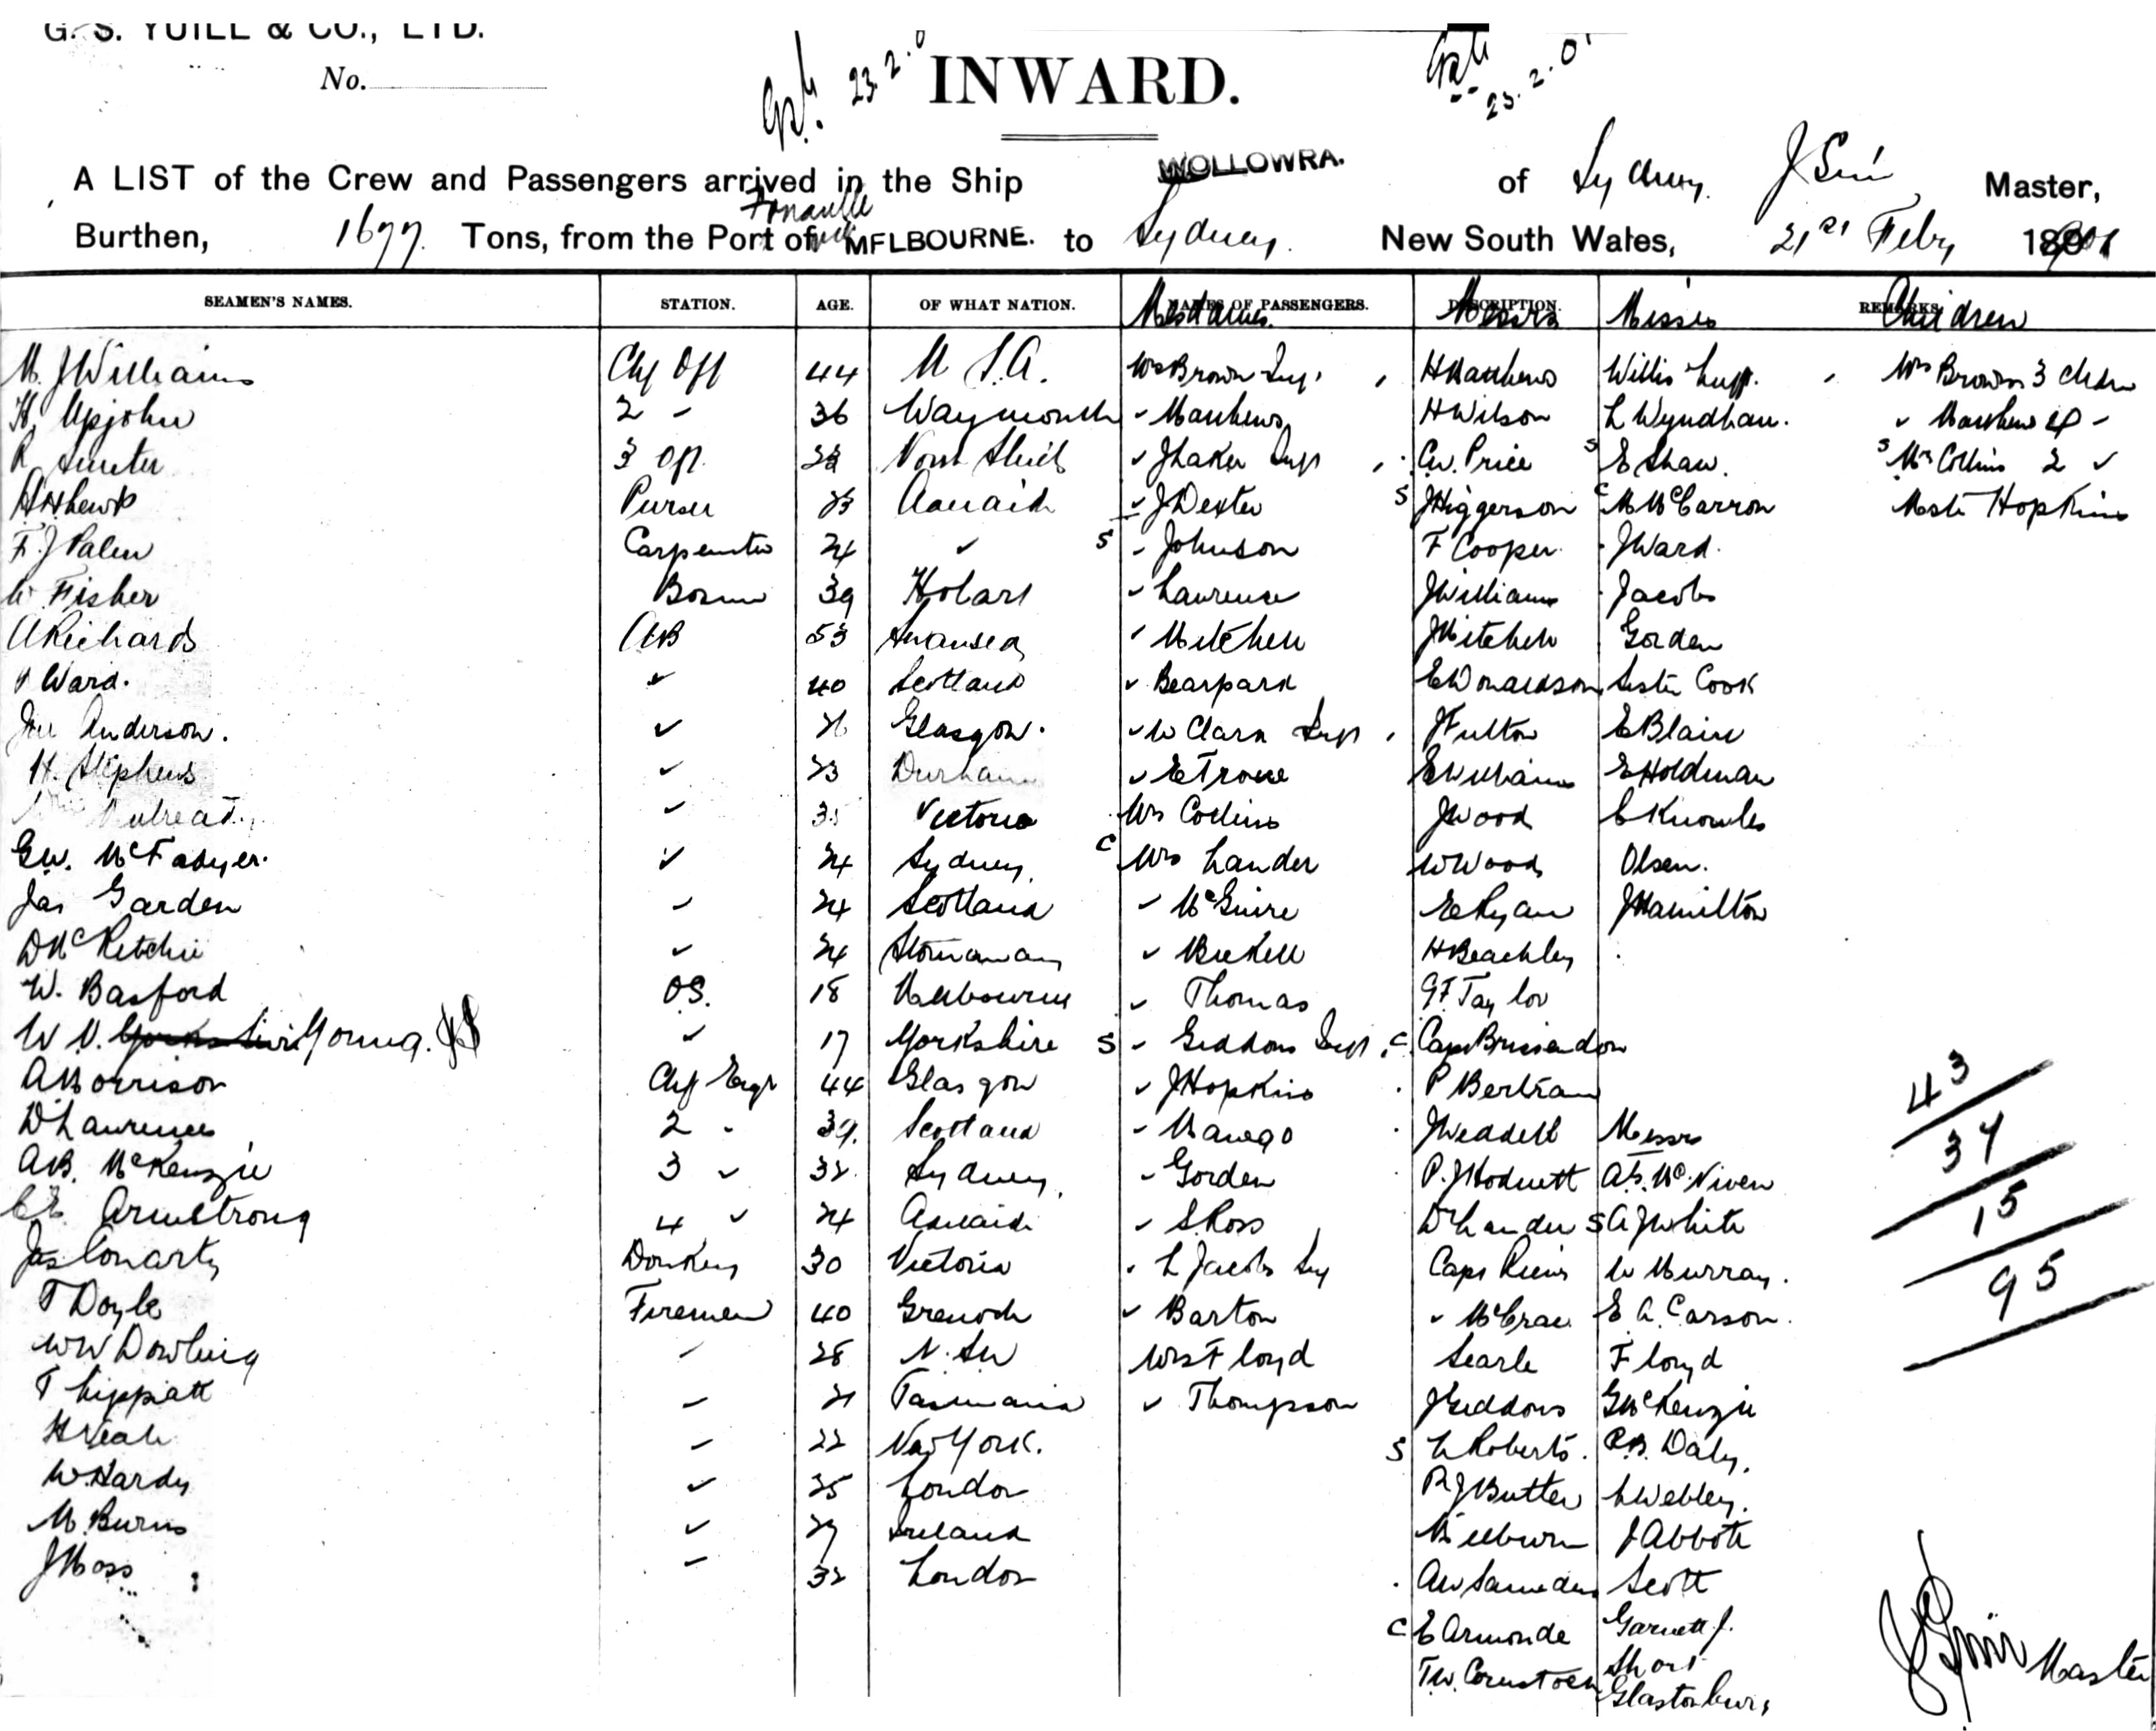 G. S. YUILL & CO., LTD.
No.
23.2.0
INWARD.
23.2.01
A LIST of the Crew and Passengers arrived in the Ship WOLLOWRA. of Sydney. Master,
Burthen, 1677. Tons, from the Port of MELBOURNE. to Sydney. New South Wales, 21st Feby 1901
SEAMEN'S NAMES. STATION. AGE. OF WHAT NATION. NAMES OF PASSENGERS. DESCRIPTION. REMARKS.
Mesdames. Messrs Misses Children
M. J Williams Chf Off 44 U.S.A. Mrs Brown H Matthews Willis Mrs Brown 3
H. Upjohn 2 - 36 Waymouth Matthews H Wilson L Wyndham. Matthews 4 -
R Hunter 3 Off. Jhaker C.W. Price S E Shaw. S Mrs Collins 2
Purser J Dexter S J Higgerson C M McCarron Hopkins
F. J Palen Carpenter 24 S Johnson F Cooper. J Ward.
W Fisher Bosun 39 Hobart Laurence J Williams Jacobs
A Richards AB 53 Swansea Mitchell J Mitchell Gorden
Ward. 40 Scotland Bearpark E Donaldson Sister Cook
Anderson. Glasgow. W Clark J Fulton E Blair
H. Stephens 23 Durham E Trowe E Williams E Holdman
Victoria Mrs Collins J Wood C Knowles
G.W. McFadyer. 24 Sydney. C Mrs Lander W Wood Olsen.
Jas Garden 24 Scotland McGuire E Ryan J Hamilton
D McRitchie 24 H Beachley
W. Basford O.S. 18 Melbourne Thomas G F Taylor
W V. Young. 17 Yorkshire S Geddons C Cap
A Morrison Chf Engr 44 Glasgow J Hopkins P Bertram
D Laurence 2 - 39. Scotland J Weddell Messrs
A B. McKenzie 3 32. Sydney. Gorden P. J Hodnett McNiven
C E. Armstrong 4 24 S Ross Dr Lander S A J White
Jas Conarty Donkey 30 Victoria L Jacobs Capt W Murray.
T Doyle Firemen 40 Grenoch Barton McCrae E A. Carson.
W W Dowling - 28 N.SW Mrs Floyd Searle Floyd
T Lippiatt - 21 Tasmania Thompson J Geddons G McKenzie
H Neale - 22 New York. S L Roberts. Daly.
W. Hardy 25 London R J Butter L Webley.
M. Burns Ireland J Abbott
J Moss - 32 London Scott
C E Armonde Garnett J.
T.W. Short
Glastonbury
43
37
15
95
Master